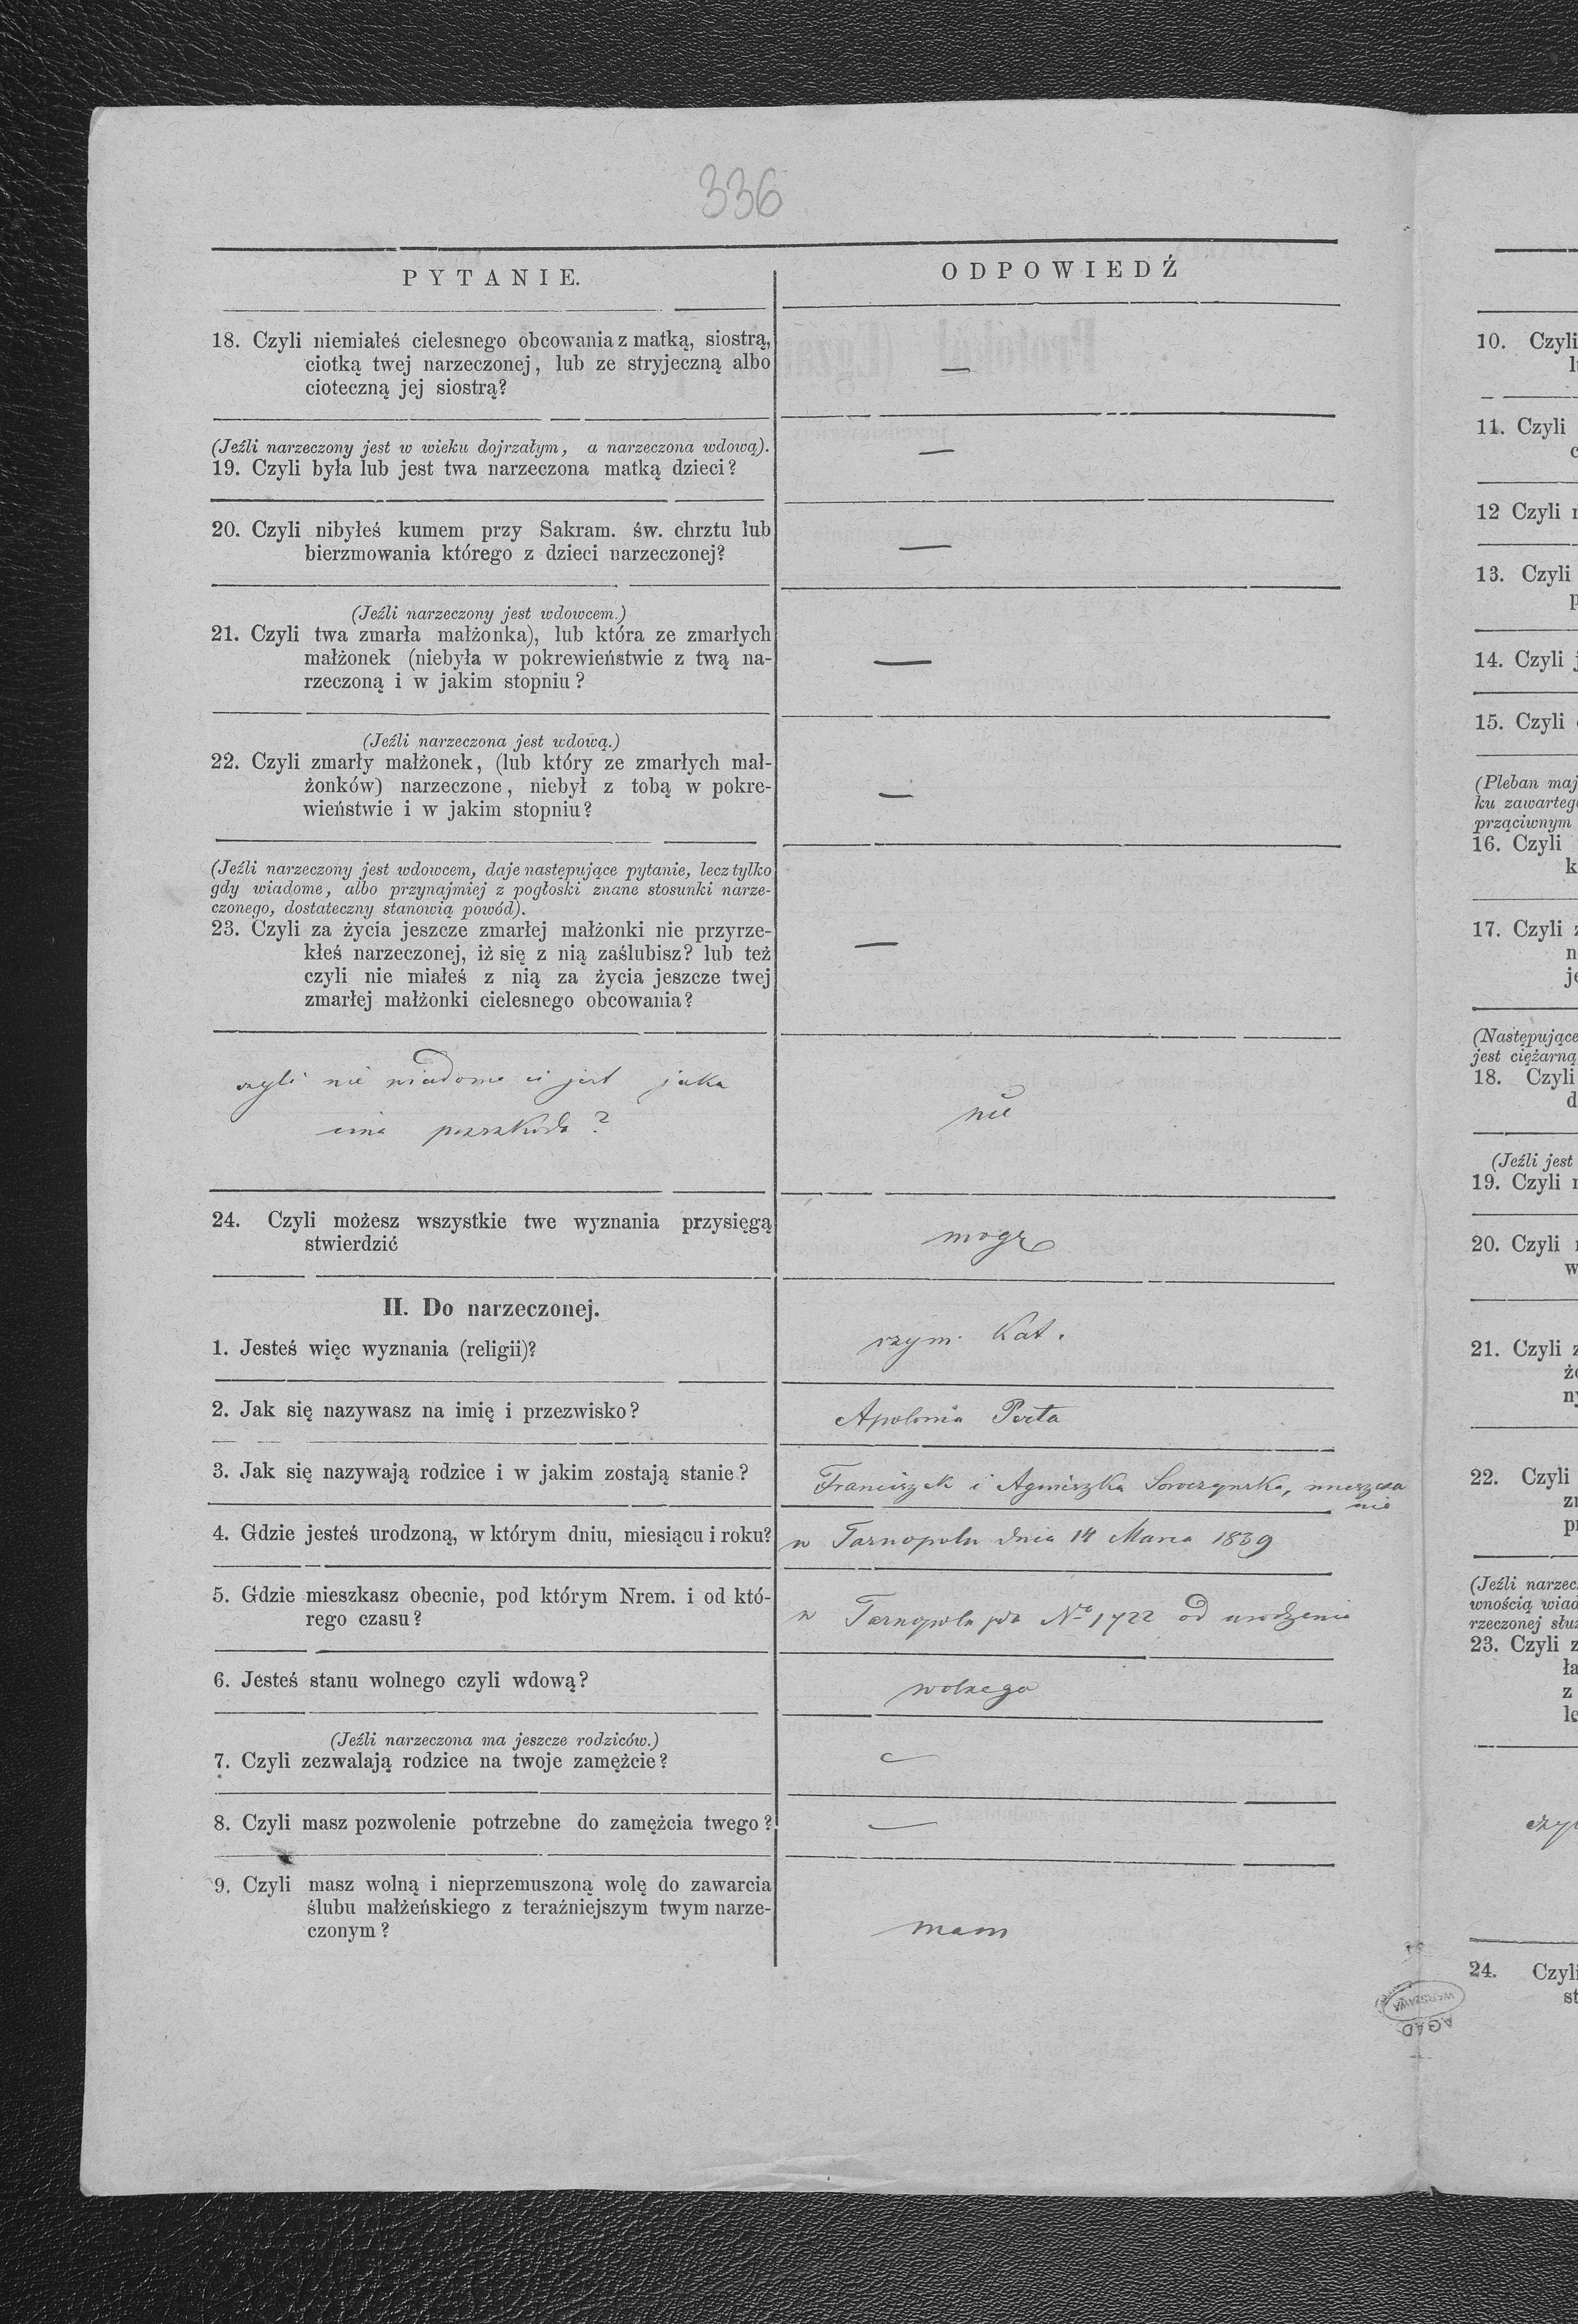 336
PYTANIE.
ODPOWIEDŹ
18. Czyli niemiałeś cielesnego obcowania z matką, siostrą,
ciotką twej narzeczonej, lub ze stryjeczną albo
cioteczną jej siostrą?
—
(Jeźli narzeczony jest w wieku dojrzałym, a narzeczona wdową).
19. Czyli była lub jest twa narzeczona matką dzieci?
—
20. Czyli nibyłeś kumem przy Sakram. św. chrztu lub
bierzmowania którego z dzieci narzeczonej?
—
(Jeźli narzeczony jest wdowcem.)
21. Czyli twa zmarła małżonka), lub która ze zmarłych
małżonek (niebyła w pokrewieństwie z twą na-
rzeczoną i w jakim stopniu?
—
(Jeźli narzeczona jest wdową.)
22. Czyli zmarły małżonek, (lub który ze zmarłych mał-
żonków) narzeczone, niebył z tobą w pokre-
wieństwie i w jakim stopniu?
—
(Jeźli narzeczony jest wdowcem, daje następujące pytanie, lecz tylko
gdy wiadome, albo przynajmiej z pogłoski znane stosunki narze-
czonego, dostateczny stanowią powód).
23. Czyli za życia jeszcze zmarłej małżonki nie przyrze-
kłeś narzeczonej, iż się z nią zaślubisz? lub też
czyli nie miałeś z nią za życia jeszcze twej
zmarłej małżonki cielesnego obcowania?
—
czyli nie wiadome ci jest jaka
inna przeszkoda?
nie
24. Czyli możesz wszystkie twe wyznania przysięgą
stwierdzić
mogę
II. Do narzeczonej.
1. Jesteś więc wyznania (religii)?
rzym. Kat.
2. Jak się nazywasz na imię i przezwisko?
Apolonia
3. Jak się nazywają rodzice i w jakim zostają stanie?
Franciszek i Agnieszka mieszcza
nie
4. Gdzie jesteś urodzoną, w którym dniu, miesiącu i roku?
w Tarnopolu dnia 14 Marca 1839
5. Gdzie mieszkasz obecnie, pod którym Nrem. i od któ-
rego czasu?
w Tarnopolu pod No 1722 od urodzenia
6. Jesteś stanu wolnego czyli wdową?
wolnego
(Jeźli narzeczona ma jeszcze rodziców.)
7. Czyli zezwalają rodzice na twoje zamężcie?
—
8. Czyli masz pozwolenie potrzebne do zamężcia twego?
—
9. Czyli masz wolną i nieprzemuszoną wolę do zawarcia
ślubu małżeńskiego z teraźniejszym twym narze-
czonym?
mam
10. Czyli
11. Czyli
12 Czyli
13. Czyli
14. Czyli
15. Czyli
(Pleban maj
ku zawarteg
prząciwnym
16. Czyli
17. Czyli
(Następujące
jest ciężarną
18. Czyli
(Jeźli jest
19. Czyli
20. Czyli
21. Czyli
22. Czyli
(Jeźli narzec
wnością wiad
rzeczonej słu
23. Czyli
24. Czyli
AGAD
WARSZAWA